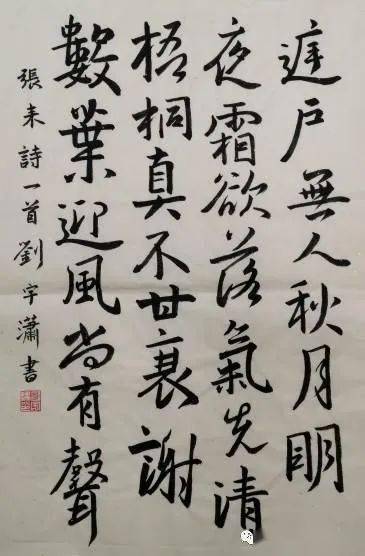 庭戶無人秋月明
夜霜欲落氣先清
梧桐真不甘衰謝
數葉迎風尚有聲
張耒詩一首劉宇瀟書